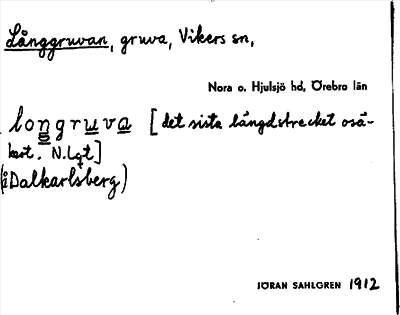 Långgruvan, gruva, Vikers sn,
Nora o. Hjulsjö hd, Örebro län
longruva [det sista längdstrecket osä-
kert. N.Lgt]
(å Dalkarlsberg)
JÖRAN SAHLGREN 1912